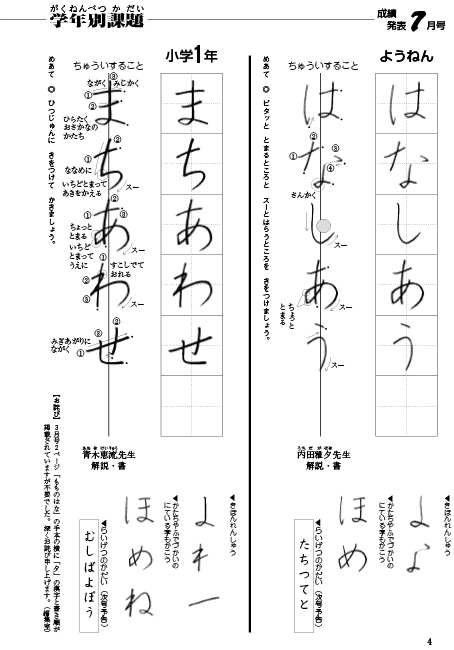 がくねんべつかだい
学年別課題
成績
発表7月号
ようねん
はなしあう
ちゅういすること
はなしあう
①
②
③
④
さんかく
スー
ちょっと
とまる
スー
めあて ◎ ピタッと とまるところと スーとはらうところを きをつけましょう。
内田雅夕先生
解説・書
◀きほんれんしゅう
◀かたちやふでづかいの
にている字もかこう
ほめ
◀らいげつのかだい(次号予告)
たちつてと
小学1年
まちあわせ
ちゅういすること
まちあわせ
ながく
③
みじかく
①
②
ひらたく
おさかなの
かたち
②
①
ななめに
いちどとまって
あきをかえる
スー
②
①
③
ちょっと
とまる
いちど
とまって
うえに
スー
①
②
③
すこしでて
おれる
スー
②
③
①
みぎあがりに
ながく
めあて ◎ ひつじゅんに きをつけて かきましょう。
青木恵流先生
解説・書
◀きほんれんしゅう
◀かたちやふでづかいの
にている字もかこう
ほめね
◀らいげつのかだい(次号予告)
むしばよぼう
4